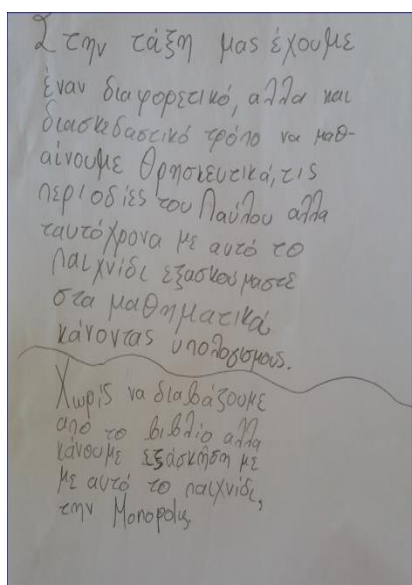 Στην τάξη μας έχουμε
έναν διαφορετικό, αλλα και
διασκεδαστικό τρόπο να μαθ-
αίνουμε Θρησκευτικά, τις
περιοδίες του Παύλου αλλα
ταυτόχρονα με αυτό το
παιχνίδι εξασκούμαστε
στα μαθηματικά
κάνοντας υπολογισμους.
Χωρίς να διαβάζουμε
από το βιβλίο αλλα
κάνουμε εξάσκηση με
με αυτό το παιχνίδι,
την Monopoly.